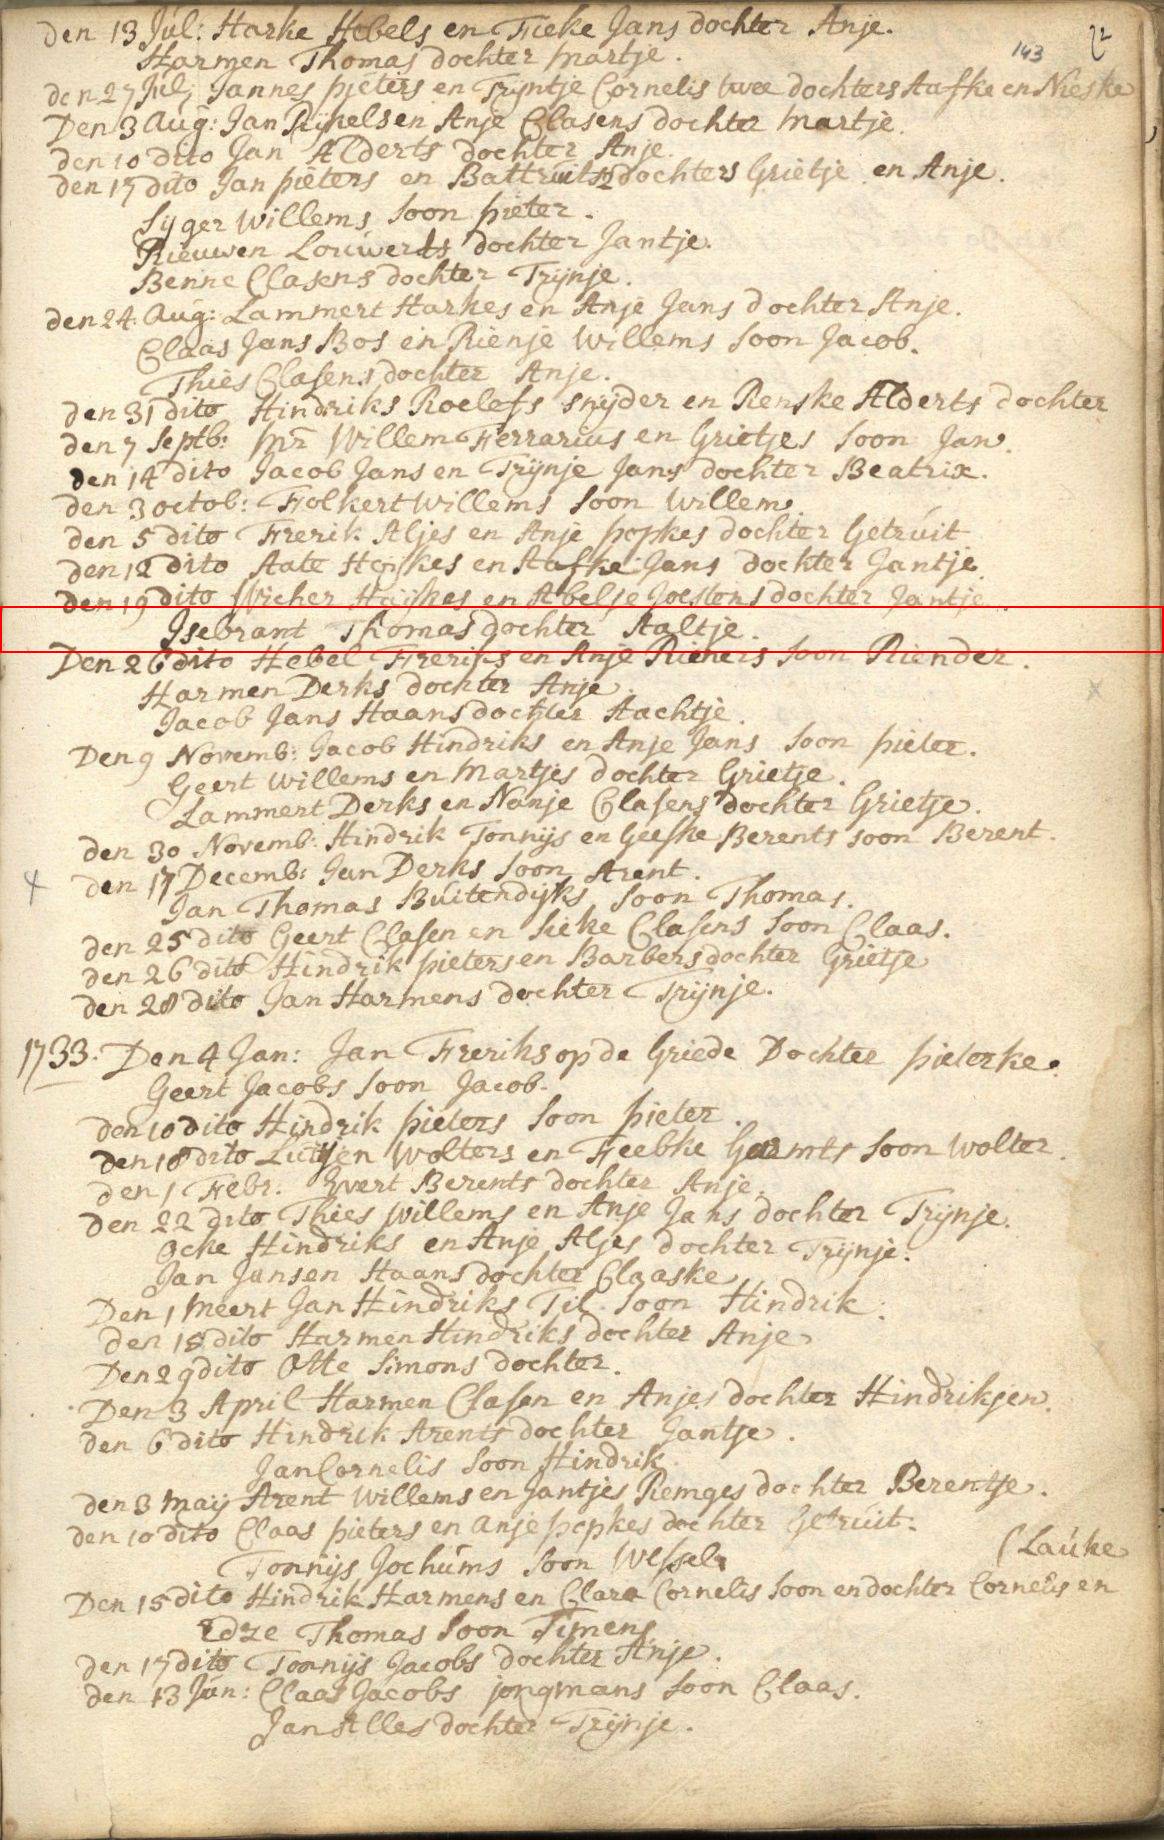 143 72
den 13 Jul: Harke Hebels en Fieke Jans dochter Anje.
Harmen Thomas dochter Martje.
den 27 Jul, Jannes pieters en Trijntje Cornelis twee dochters Aafke en Nieske
Den 3 Aug: Jan Rijkels en Anje Clasens dochter Martje.
den 10 dito Jan Alderts dochter Anje.
den 17 dito Jan pieters en dochters Grietje en Anje.
Syger Willems soon pieter.
Rieuwen Louwerts dochter Jantje.
Benne Clasens dochter Trijnje.
den 24 Aug: Lammert Harkes en Anje Jans dochter Anje.
Claas Jans Bos en Rienje Willems soon Jacob.
Thies Clasens dochter Anje.
den 31 dito Hindriks Roelefs snijder en Renske Alderts dochter
den 7 Septb: Mr Willem Ferrarius en Grietjes soon Jan.
den 14 dito Jacob Jans en Trijnje Jans dochter Beatrix.
den 3 octob: Folkert Willems soon Willem.
den 5 dito Frerik Aljes en Anje popkes dochter Getruit
den 12 dito Aate en Aafke Jans dochter Jantje
den 19 dito Wicher en Abelje Joestens dochter Jantje
Isebrant Thomas dochter Aaltje.
Den 26 dito Hebel Freriks en Anje Rieners soon Riender.
Harmen Derks dochter Anje.
Jacob Jans Haans dochter Aachtje.
Den 9 Novemb: Jacob Hindriks en Anje Jans soon pieter.
Geert Willems en Martjes dochter Grietje.
Lammert Derks en Nanje Clasens dochter Grietje.
den 30 Novemb: Hindrik Tonnijs en Geeske Berents soon Berent.
den 17 Decemb: Jan Derks soon Arent.
Jan Thomas Buitendijks soon Thomas.
den 25 dito Geert Clasen en Sieke Clasens soon Claas.
den 26 dito Hindrik pieters en Barbers dochter Grietje
den 28 dito Jan Harmens dochter Trijnje.
1733. Den 4 Jan: Jan Freriks op de Griede Dochter pieterke.
Geert Jacobs soon Jacob.
den 10 dito Hindrik pieters soon pieter.
den 18 dito Luitjen Wolters en Feebke Garmts soon Wolter.
den 1 Febr. Evert Berents dochter Anje.
den 22 dito Thies Willems en Anje Jans dochter Trijnje.
Ocke Hindriks en Anje Aljes dochter Trijnje.
Jan Jansen Haans dochter Claaske
Den 1 Meert Jan Hindriks Til soon Hindrik.
den 18 dito Harmen Hindriks dochter Anje
Den 29 dito Otte Simons dochter.
Den 3 April Harmen Clasen en Anjes dochter Hindrikjen.
den 6 dito Hindrik Arents dochter Jantje.
Jan Cornelis soon Hindrik.
den 3 Maij Arent Willems en Jantjes Remges dochter Berentje.
den 10 dito Claas pieters en Anje popkes dochter Getruit.
Tonnijs Jochums soon Wessel. (Lauke
Den 15 dito Hindrik Harmens en Clara Cornelis soon en dochter Cornelis en
Edze Thomas soon Timens
den 17 dito Tonnijs Jacobs dochter Anje.
den 13 Jun: Claas Jacobs jongmans soon Claas.
Jan Alles dochter Trijnje.